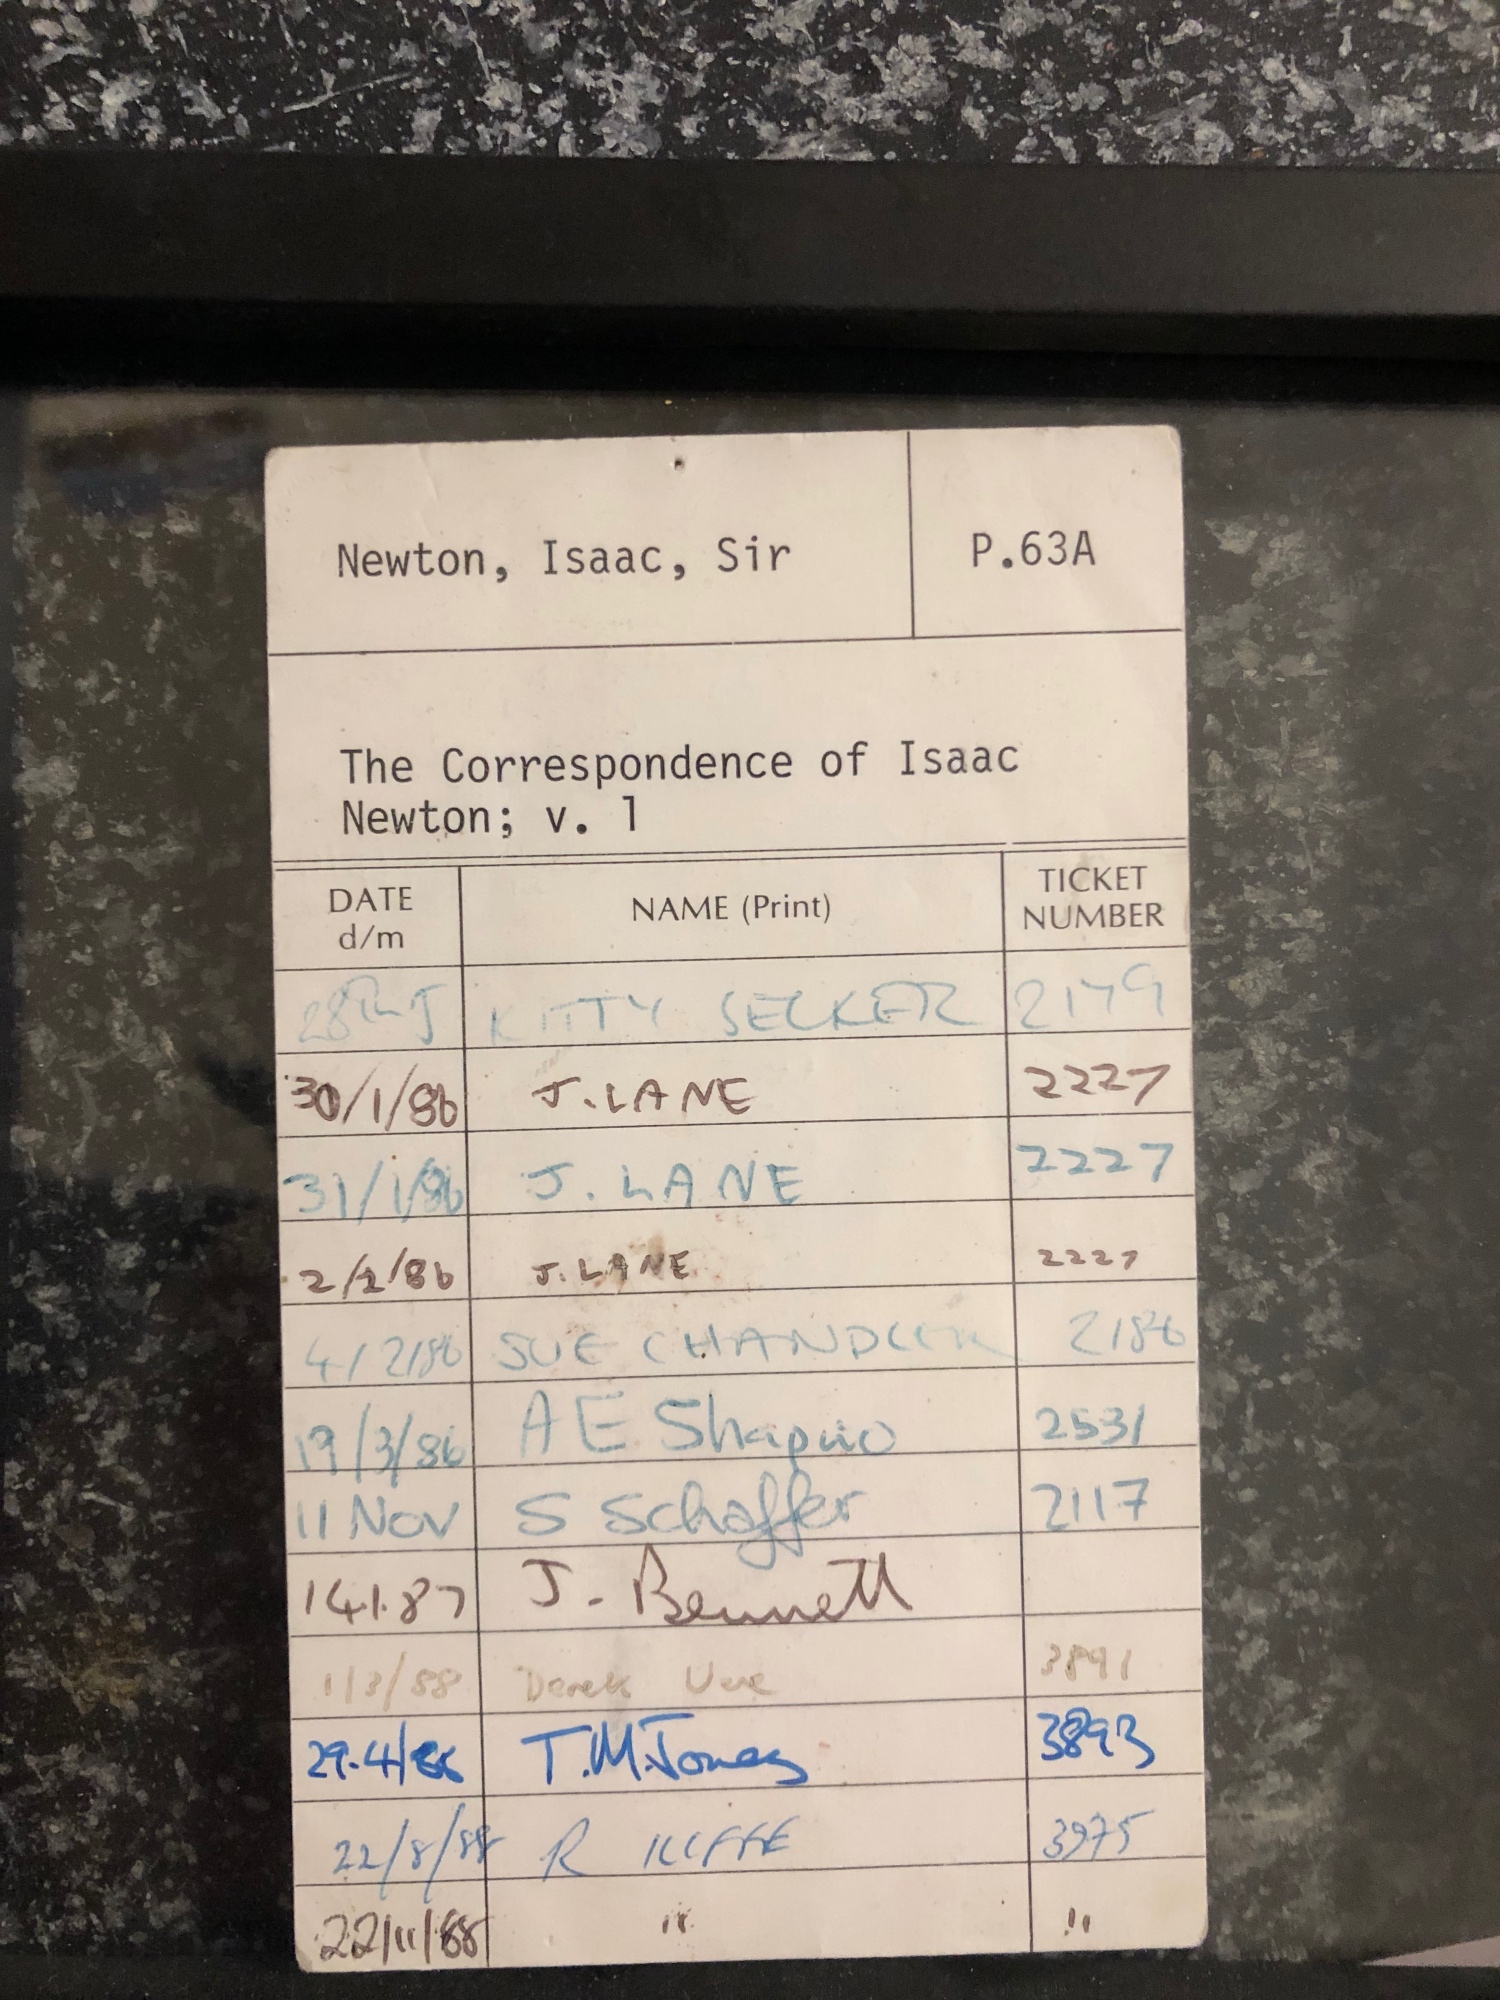 Newton, Isaac, Sir P.63A
The Correspondence of Isaac
Newton; v. 1
DATE d/m NAME (Print) TICKET NUMBER
28th J KITTY SECKER 2179
30/1/86 J. LANE 2227
31/1/86 J. LANE 2227
2/2/86 J. LANE 2227
4/2/86 SUE CHANDLER 2186
19/3/86 A E Shapiro 2531
11 Nov S Schaffer 2117
14.1.87 J. Bennett
1/3/88 Derek 3891
29.4/88 T.M. Jones 3893
22/8/88 R ILIFFE 3975
22/11/88 " "